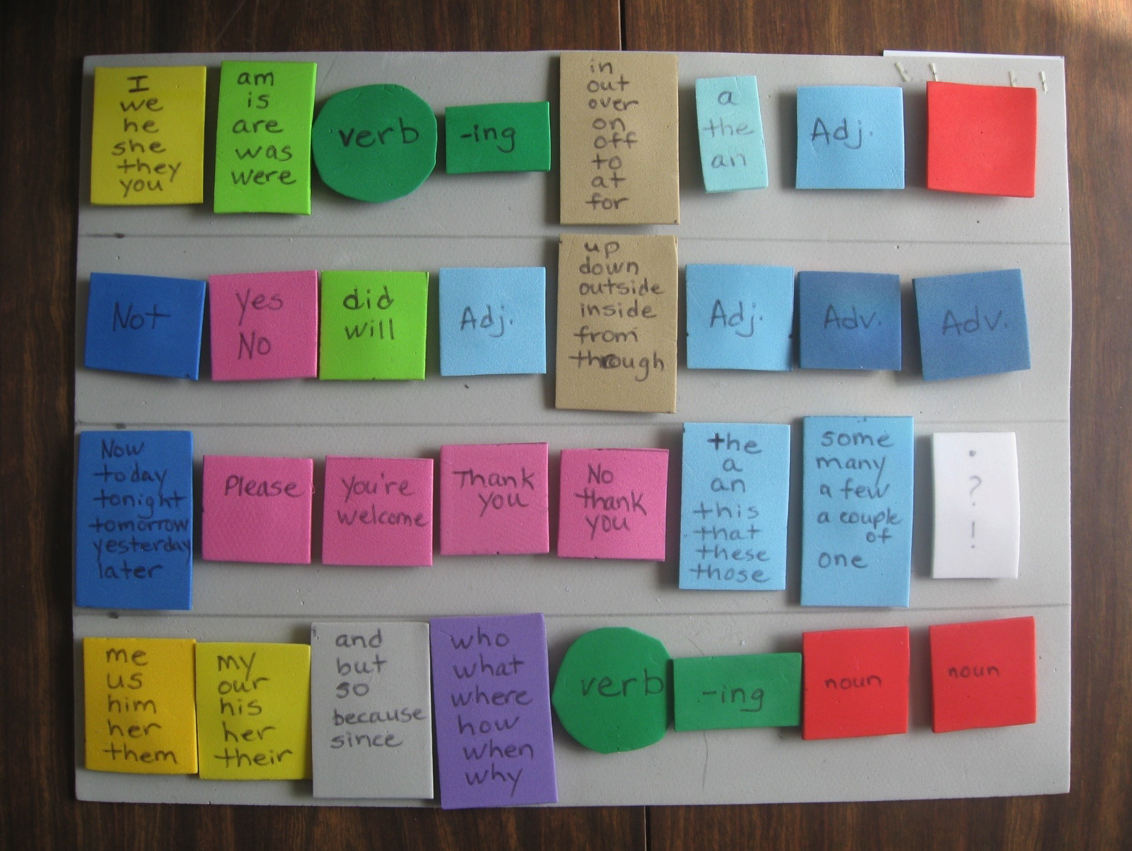 I
we
he
she
they
you
am
is
are
was
were
verb
-ing
in
out
over
on
off
to
at
for
a
the
an
Adj.
Not
Yes
No
did
will
Adj.
up
down
outside
inside
from
through
Adj.
Adv.
Adv.
Now
today
tonight
tomorrow
yesterday
later
Please
You're
welcome
Thank
you
No
thank
you
the
a
an
this
that
these
those
some
many
a few
a couple
of
one
.
?
!
me
us
him
her
them
my
our
his
her
their
and
but
so
because
since
who
what
where
how
when
why
verb
-ing
noun
noun